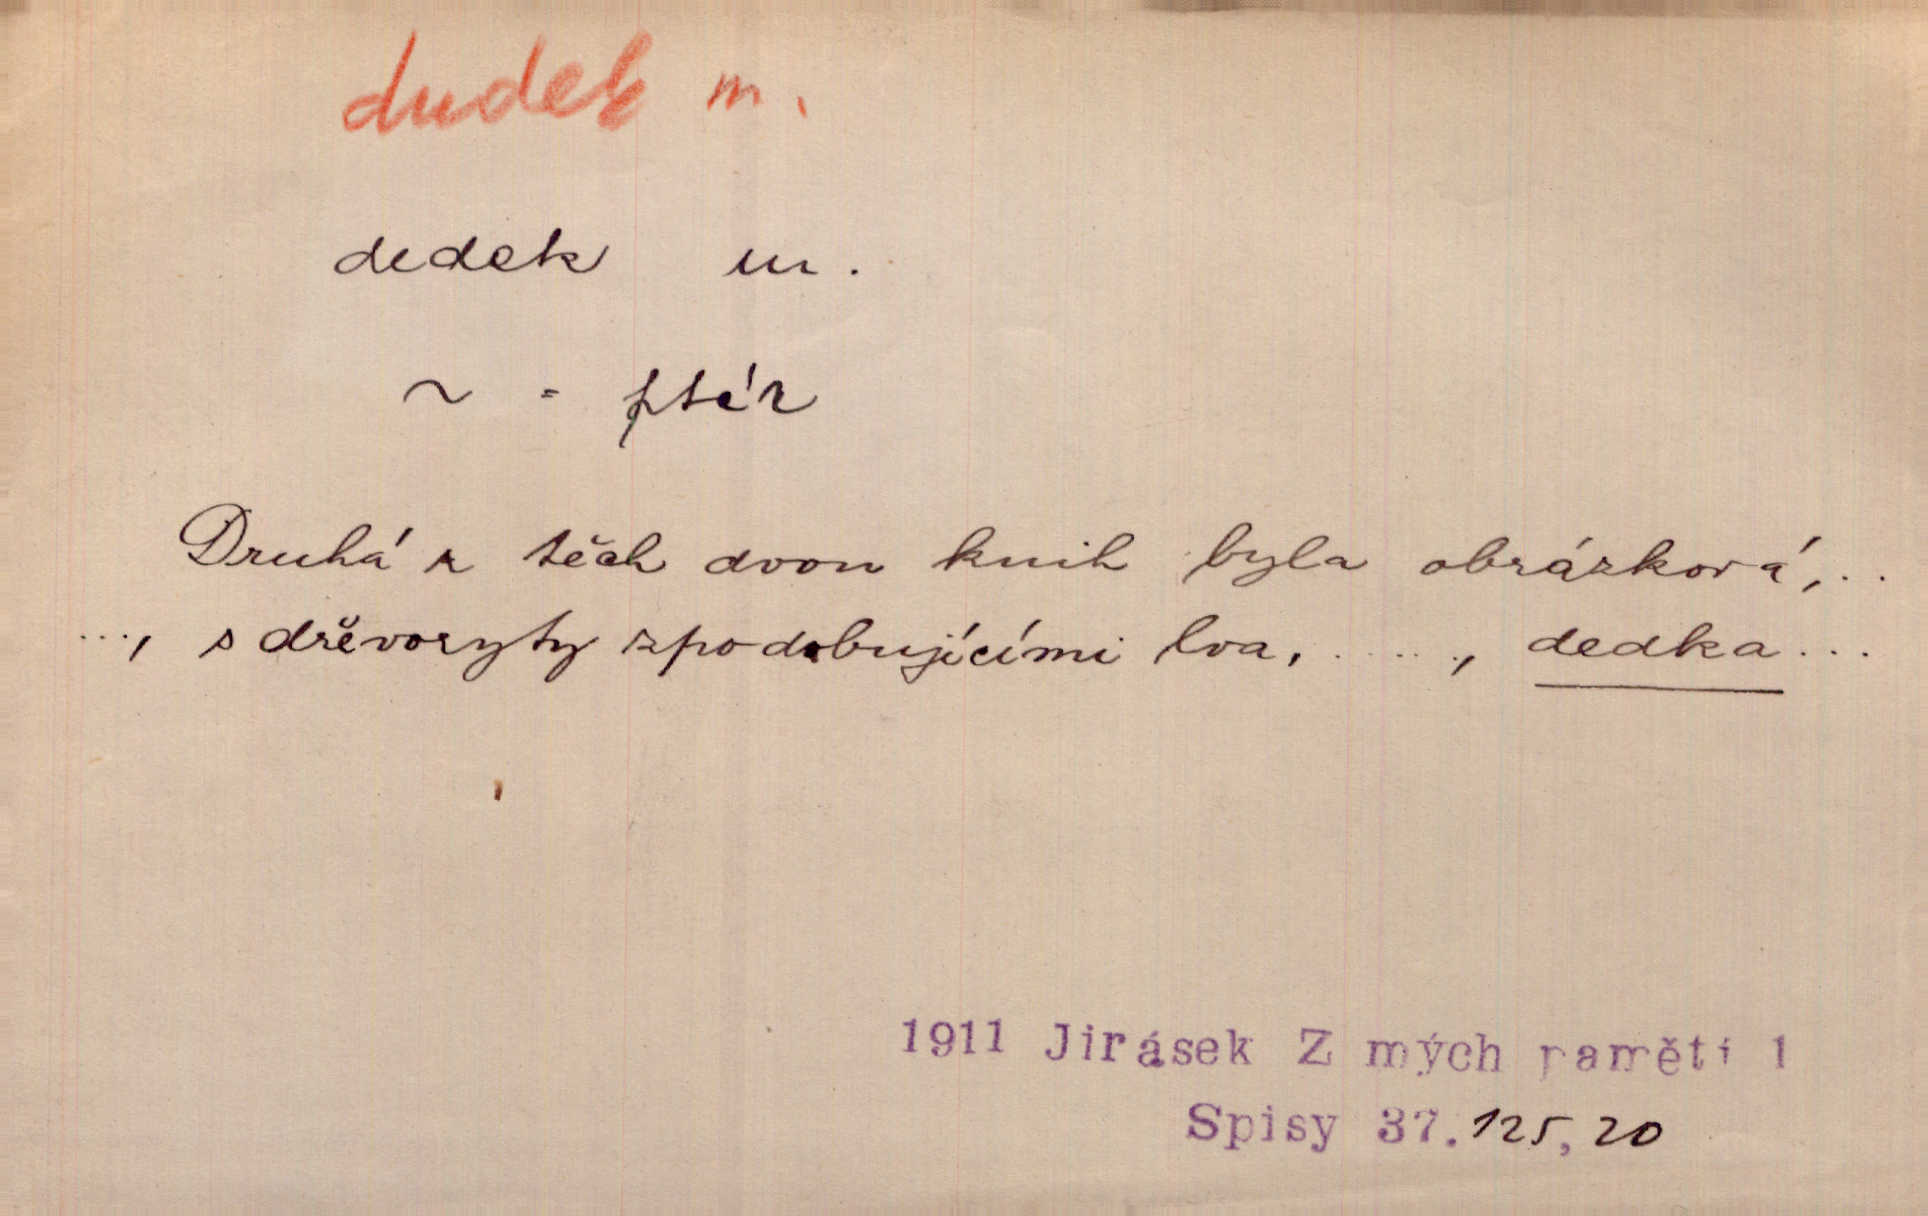 dudek m.
dedek m.
~ = pták
Druhá z těch dvou knih byla obrázková,..
..., s dřevoryty zpodobujícími lva, ....., dedka...
1911 Jirásek Z mých pamětí 1
Spisy 37.125,20